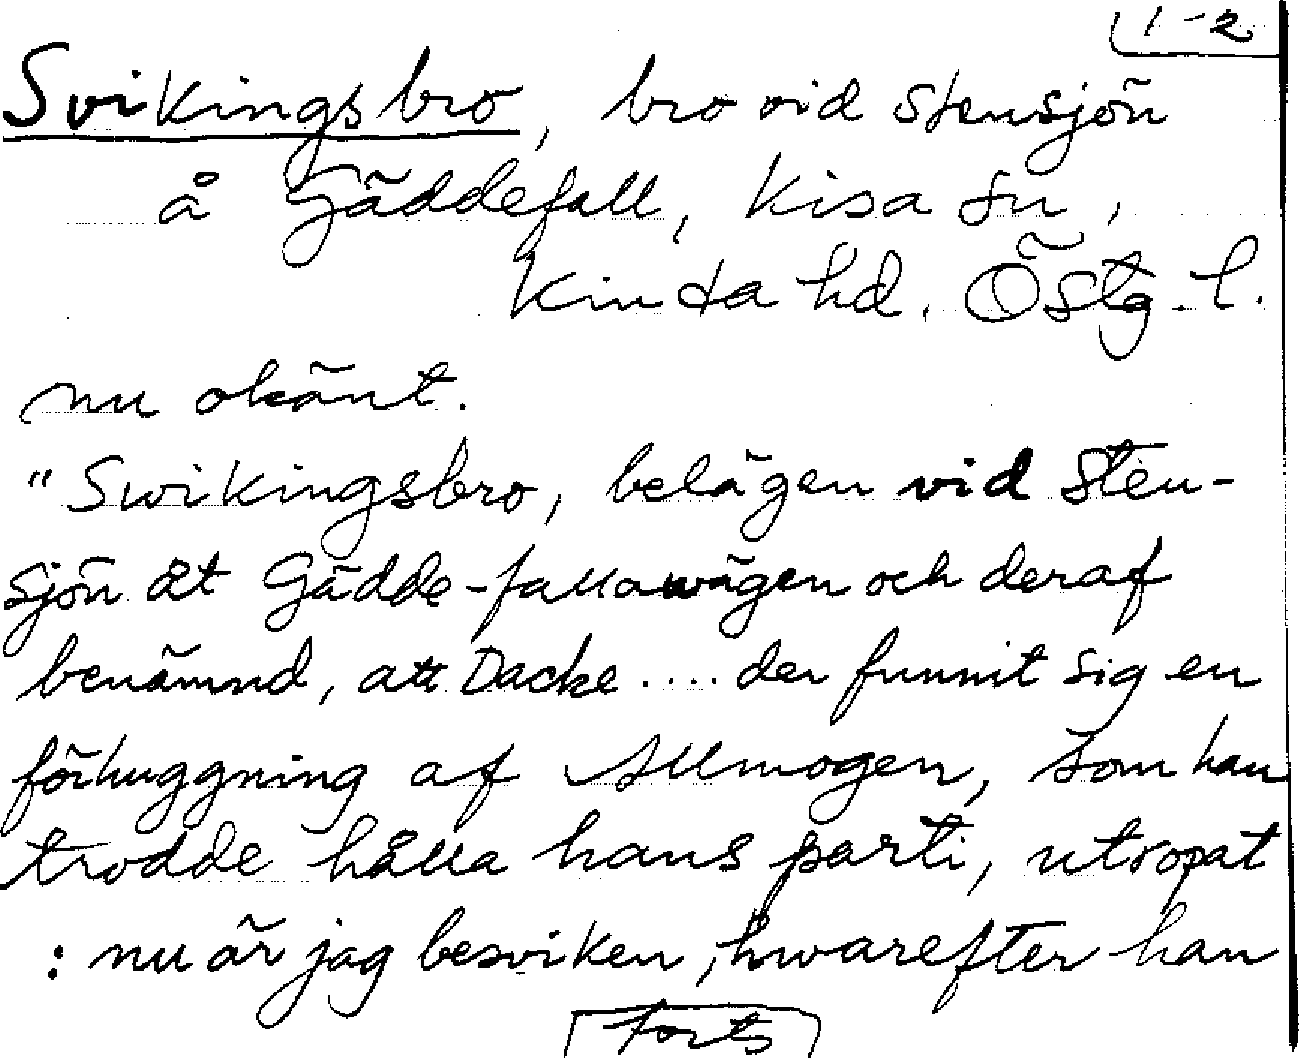 1-2
Svikingsbro, bro vid Stensjön
å Gäddefall, Kisa sn,
Kinda hd. Östg. l.
nu okänt.
"Swikingsbro, belägen vid Sten-
sjön åt Gädde-fallawägen och deraf
benämnd, att Dacke .... der funnit sig en
förhuggning af Allmogen, som han
trodde hålla hans parti, utropat
: nu är jag besviken, hwarefter han
Forts